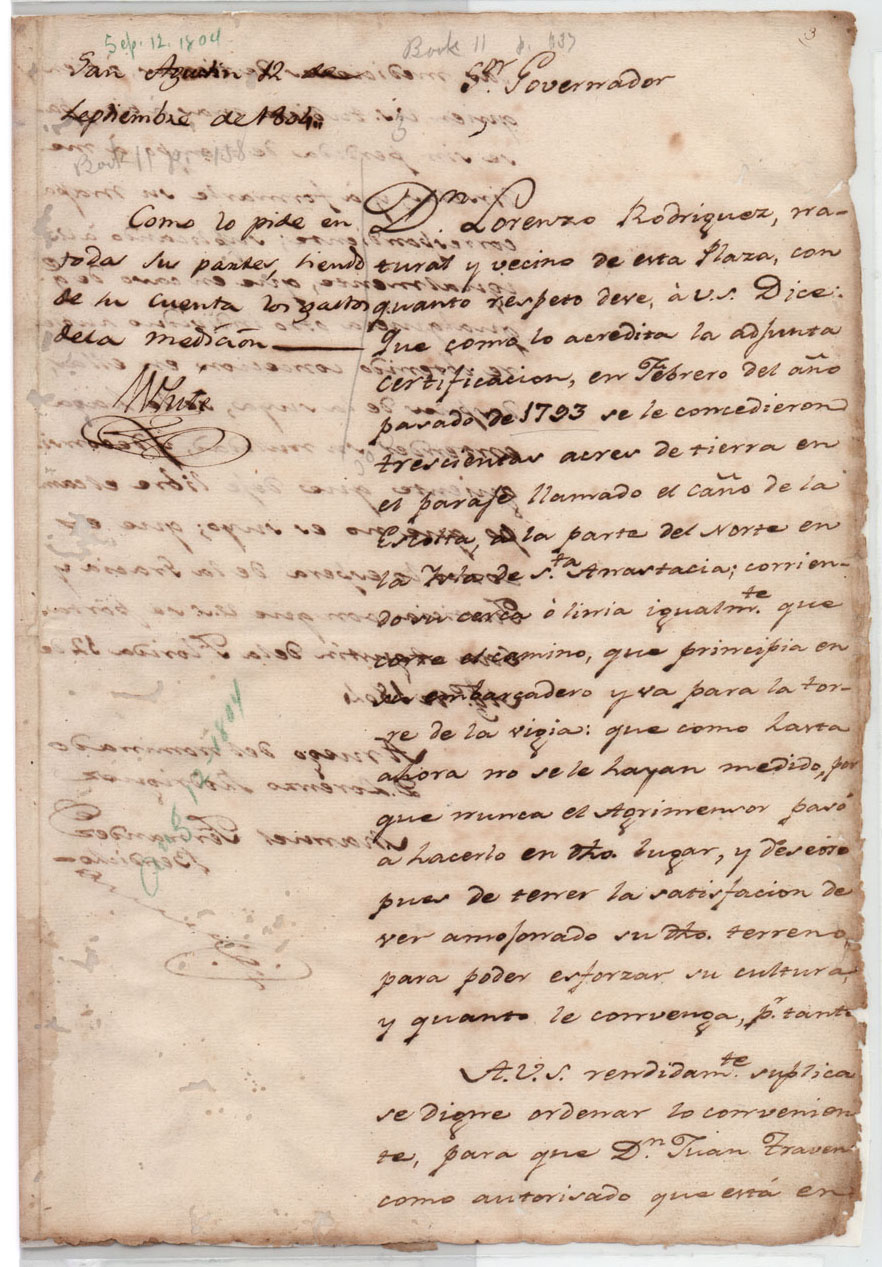 Sep. 12. 1804
Book 11 p. 137
3
San Agustin 12 de
Septiembre de 1804
Como lo pide en
todas sus partes, siendo
de su cuenta los gastos
dela medicion
White
Sor. Governador
Dn. Lorenzo Rodriguez, na-
tural y vecino de esta Plaza, con
quanto respeto deve, à V.S. Dice:
Que como lo acredita la adjunta
certificacion, en Febrero del año
pasado de 1793 se le concedieron
trescientas acres de tierra en
el paraje llamado el caño de la
Escolta, a la parte del Norte en
la Ysla de Sta. Anastacia; corrien-
do su cerca ò linia igualmte. que
corre el camino, que principia en
su embarcadero y va para la tor-
re de la vigia: que como hasta
ahora no se le hayan medido, por
que nunca el Agrimensor pasó
a hacerlo en dho. lugar, y deseoso
pues de tener la satisfacion de
ver amojonado su dho. terreno,
para poder esforzar su cultura,
y quanto le convenga, pr. tanto
A.V.S. rendidamte. suplica
se digne ordenar lo convenien
te, para que Dn. Juan Traven
como autorisado que está en